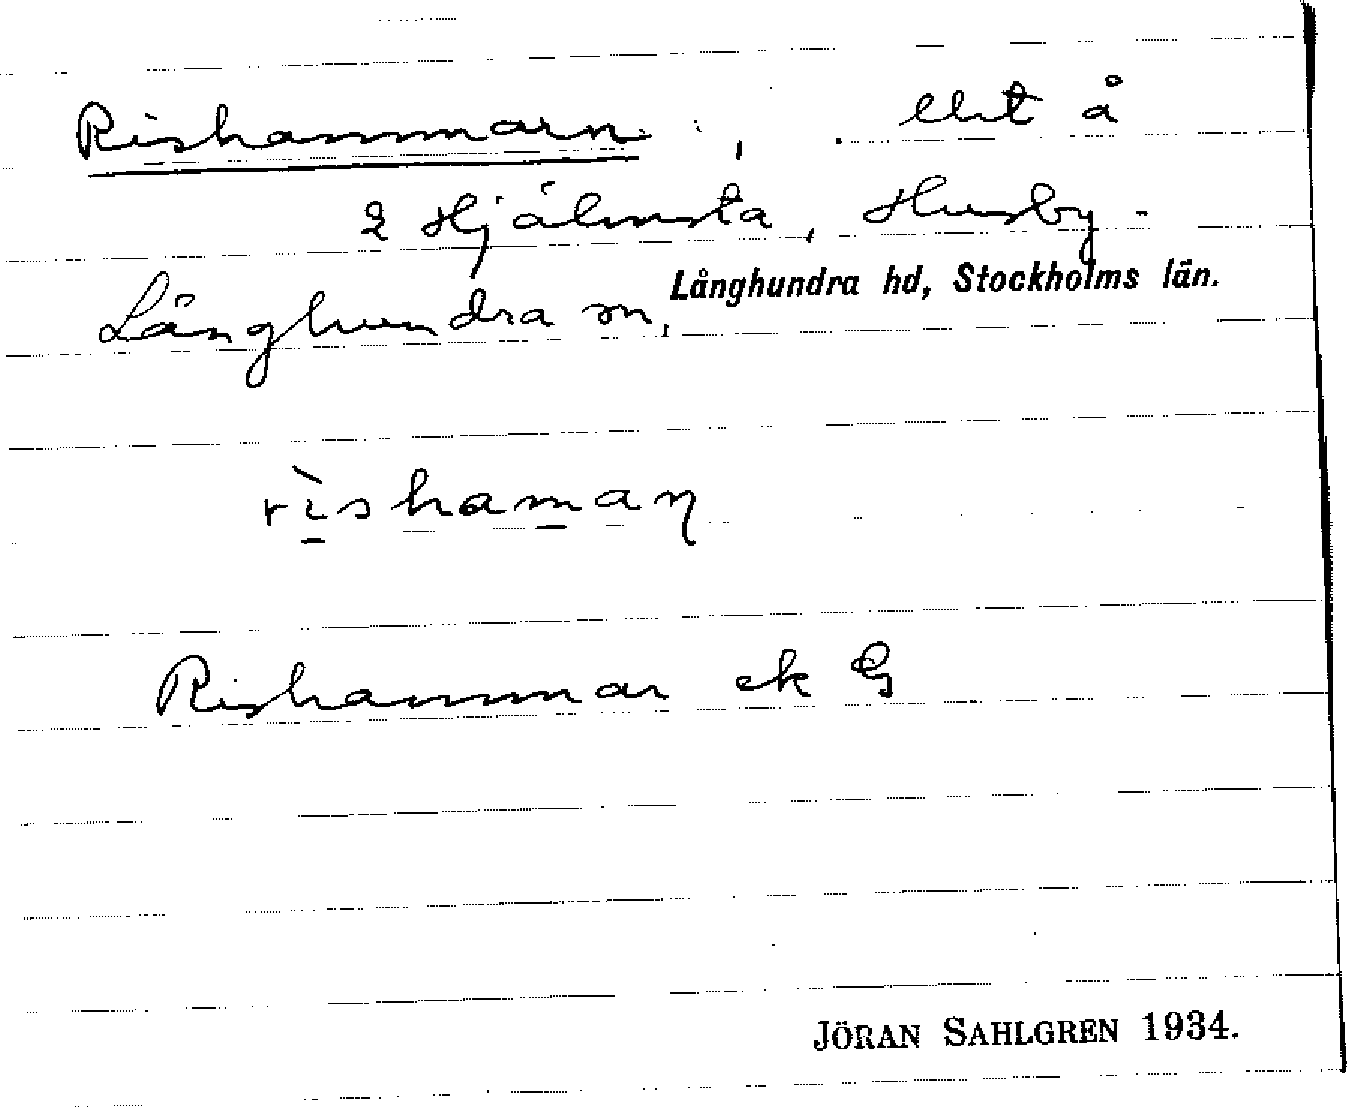 Rishammarn, lht å
2 Hjälmsta, Husby-
Långhundra sn, Långhundra hd, Stockholms län.
rìshamaṇ
Rishammar ek G
JÖRAN SAHLGREN 1934.